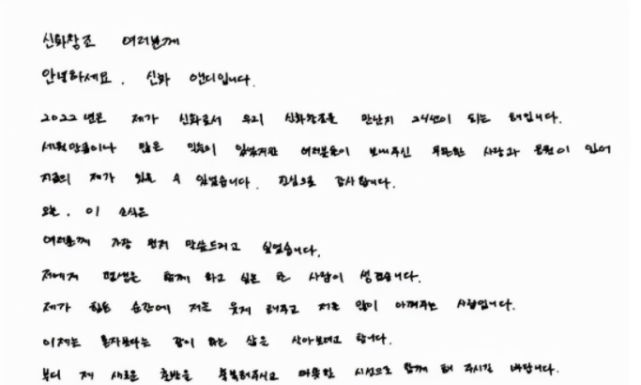 신화창조 여러분께
안녕하세요. 신화 앤디입니다.
2022년은 제가 신화로서 우리 신화창조를 만난지 24년이 되는 해입니다.
세월만큼이나 많은 일들이 있었지만 여러분들이 보내주신 무한한 사랑과 응원이 있어
지금의 제가 있을 수 있었습니다. 진심으로 감사합니다.
오늘, 이 소식은
여러분께 가장 먼저 말씀드리고 싶었습니다.
저에게 평생을 함께 하고 싶은 한 사람이 생겼습니다.
제가 힘든 순간에 저를 웃게 해주고 저를 많이 아껴주는 사람입니다.
이제는 혼자보다는 같이 하는 삶을 살아보려고 합니다.
부디 제 새로운 출발을 축복해주시고 따뜻한 시선으로 함께 해 주시길 바랍니다.